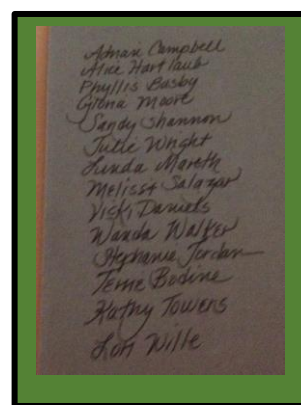 Adnan Campbell
Alice Hartlaub
Phyllis Busby
Moore
Sandy Shannon
Julie Wright
Linda Mareth
Melissa Salazar
Vicki Daniels
Wanda Walker
Stephanie Jordan
Terrie Bodine
Kathy Towers
Lori Wille